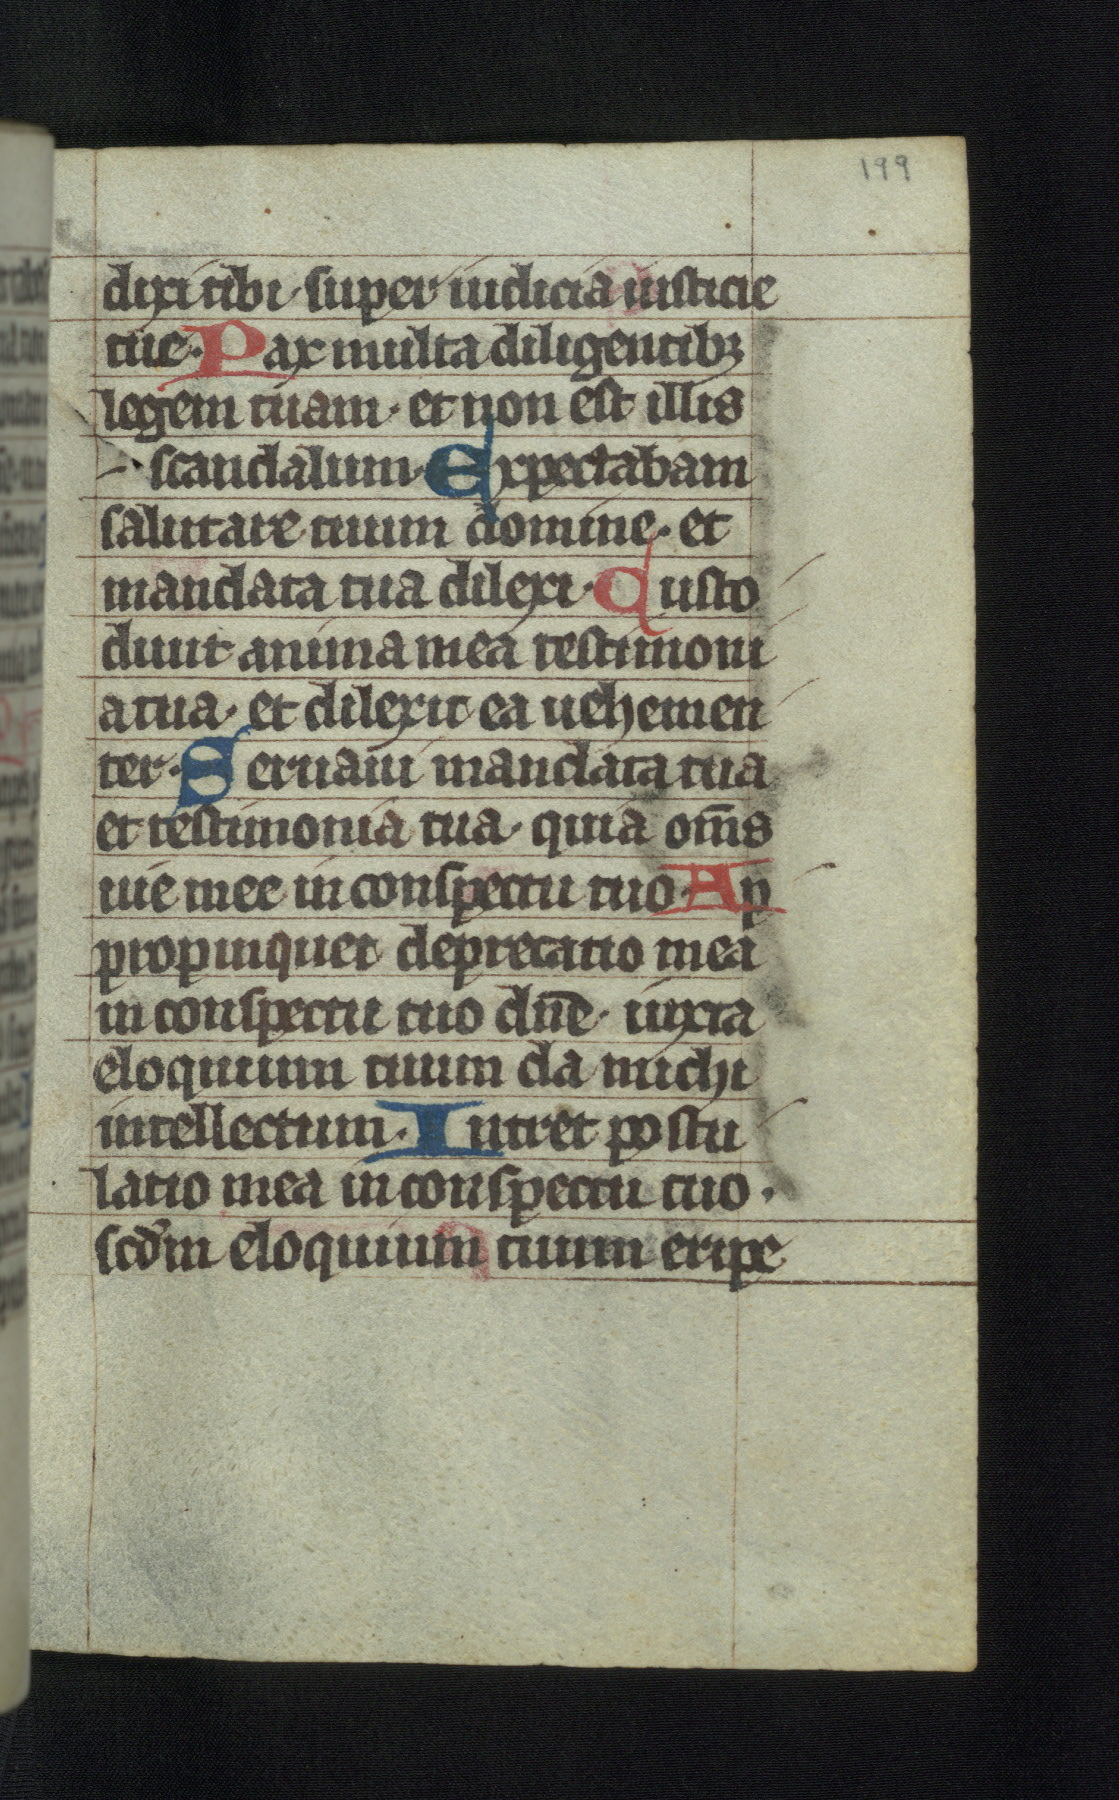 199
dixi tibi · super iudicia iusticie
tue · Pax multa diligentibꝫ
legem tuam · et non est illis
scandalum · Expectabam
salutare tuum domine · et
mandata tua dilexi · Custo
diuit anima mea testimoni
a tua · et dilexit ea uehemen
ter · Seruaui mandata tua
et testimonia tua · quia om̄s
uie mee in conspectu tuo · Ap
propinquet deprecatio mea
in conspectu tuo dn̄e · iuxta
eloquium tuum da michi
intellectum · Intret postu
latio mea in conspectu tuo ·
scd̄m eloquium tuum eripe